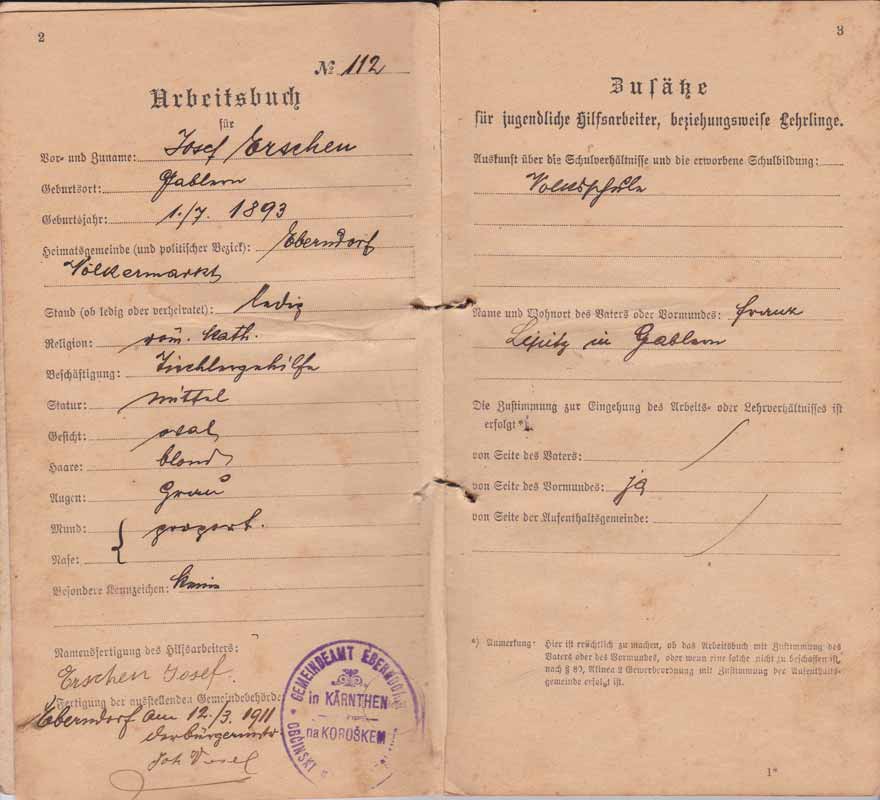 2
№ 112
Arbeitsbuch
für
Vor- und Zuname: Josef Erschen
Geburtsort: Gablern
Geburtsjahr: 1./7. 1893
Heimatsgemeinde (und politischer Bezirk): Eberndorf
Völkermarkt
Stand (ob ledig oder verheiratet): ledig
Religion: röm. kath.
Beschäftigung: Tischlergehilfe
Statur: mittel
Gesicht: oval
Haare: blond
Augen: Grau
Mund: proport.
Nase:
Besondere Kennzeichen: keine
Namensfertigung des Hilfsarbeiters:
Erschen Josef.
Fertigung der ausstellenden Gemeindebehörde:
Eberndorf am 12./3. 1911
der Bürgermstr
Joh
GEMEINDEAMT EBERNDORF
in KÄRNTHEN
na KOROŠKEM
OBČINSKI
3
Zusätze
für jugendliche Hilfsarbeiter, beziehungsweise Lehrlinge.
Auskunft über die Schulverhältnisse und die erworbene Schulbildung:
Volksschule
Name und Wohnort des Vaters oder Vormundes: Franz
in Gablern
Die Zustimmung zur Eingehung des Arbeits- oder Lehrverhältnisses ist
erfolgt *)
von Seite des Vaters:
von Seite des Vormundes: ja
von Seite der Aufenthaltsgemeinde:
*) Anmerkung: Hier ist ersichtlich zu machen, ob das Arbeitsbuch mit Zustimmung des
Vaters oder des Vormundes, oder wenn eine solche nicht zu beschaffen ist,
nach § 80, Alinea 2 Gewerbeordnung mit Zustimmung der Aufenthalts-
gemeinde erfolgt ist.
1*